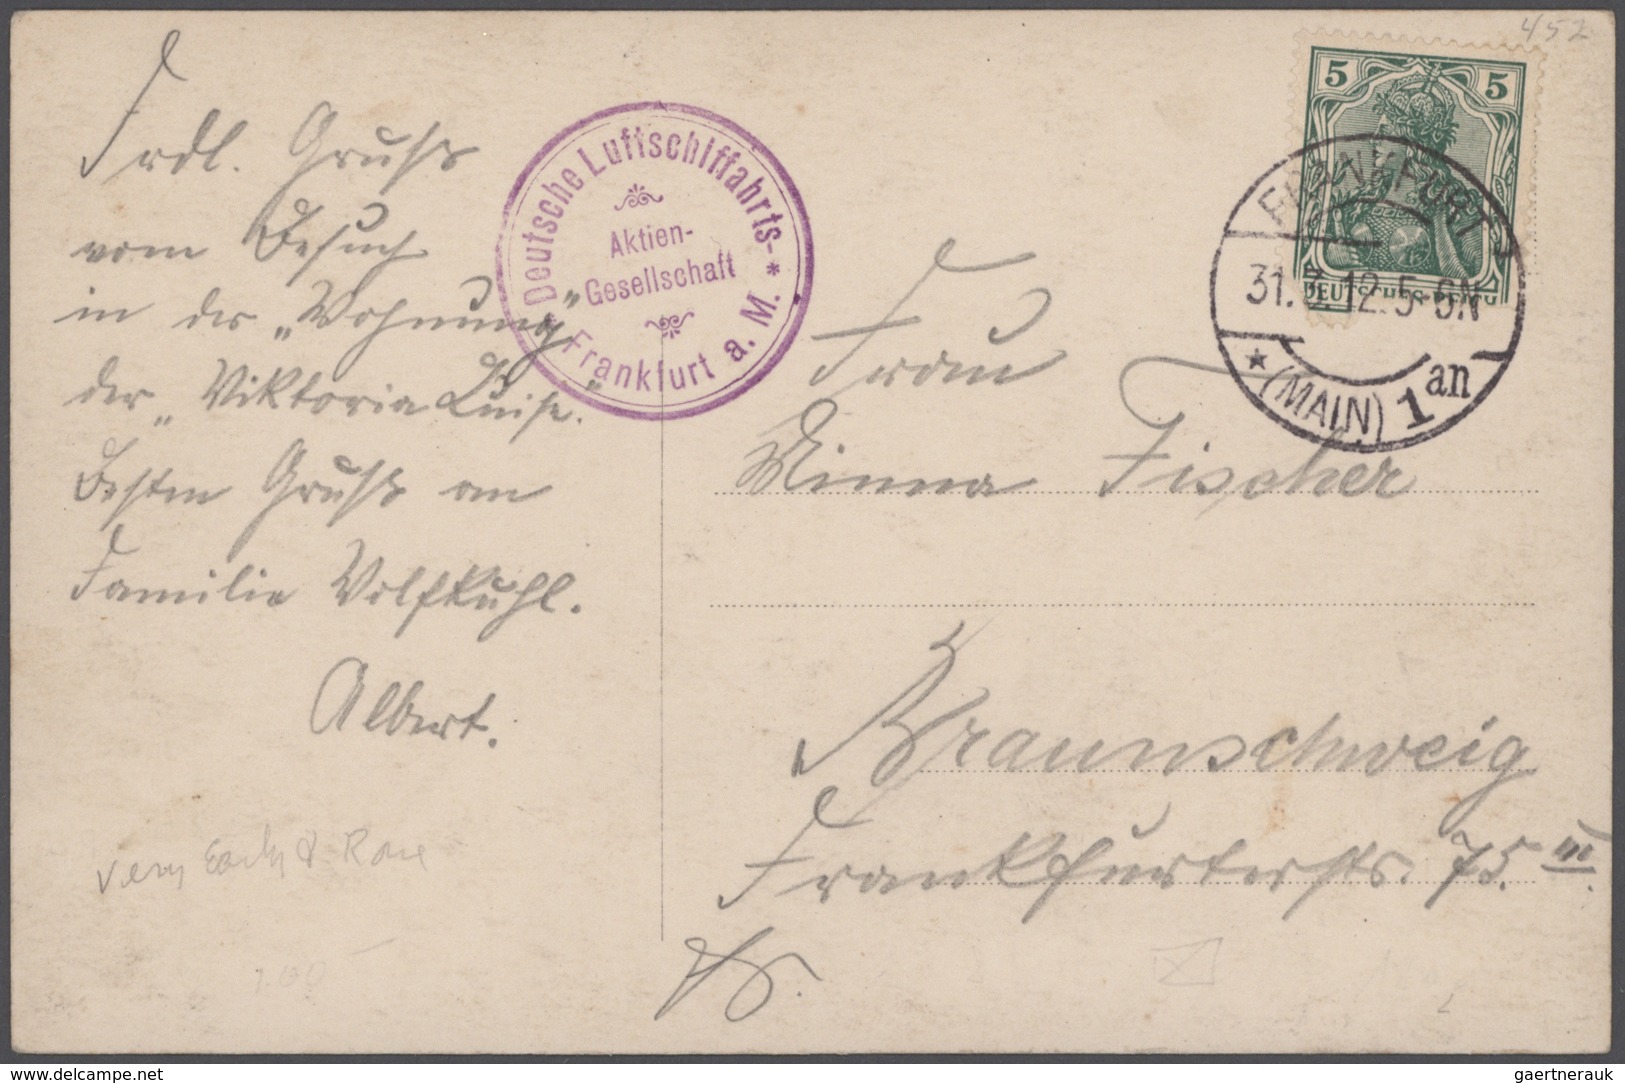 452
Frdl. Gruß
vom Besuch
in der „Wohnung"
der „Viktoria Luise."
Besten Gruß an
Familie Wolfkuhl.
Albert.
Deutsche Luftschiffahrts-
Aktien-
Gesellschaft
* Frankfurt a. M. *
5 5
DEUTSCHES REICH
FRANKFURT
31.3.12.5-6N
* (MAIN) 1 an
Frau
Minna Fischer
Braunschweig
Frankfurterstr. 75. III.
very Early & Rare
www.delcampe.net
gaertnerauk